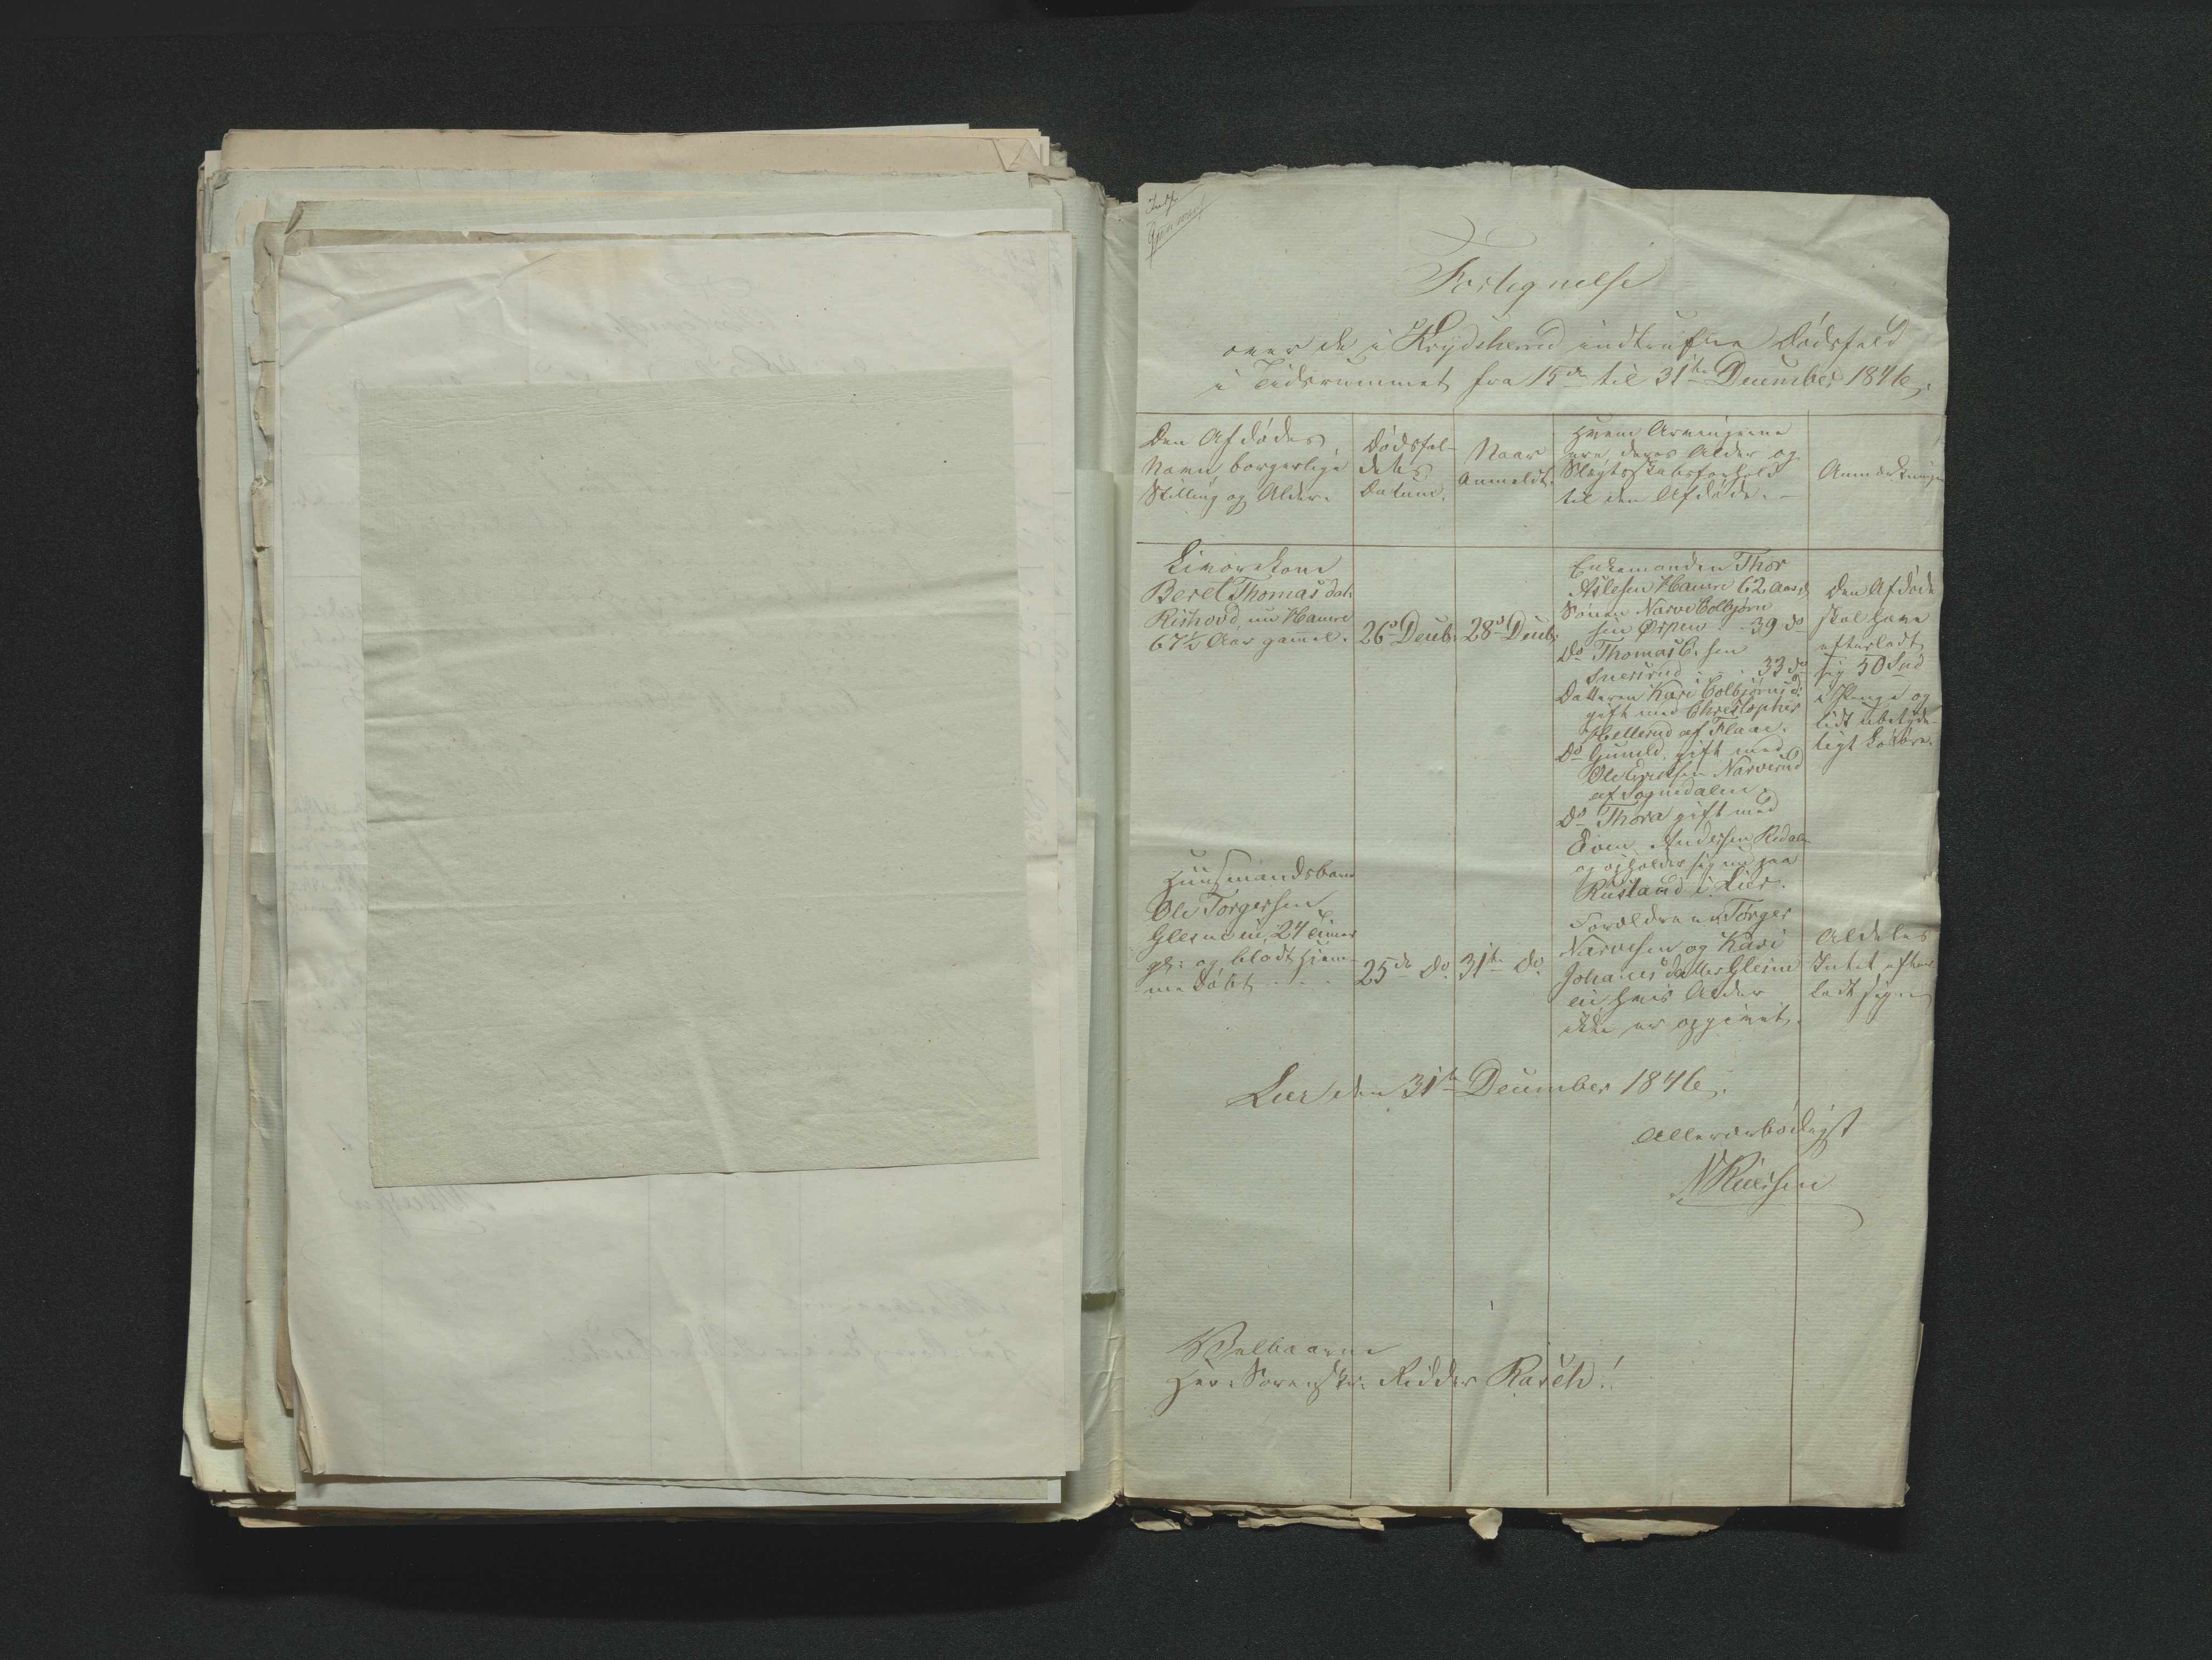 Fortegnelse
over de i Krydsherred indtrufne Dødsfald
i Tidsrummet fra 15de til 31te December 1846.
Den Afdødes
Navn, borgerlige
Stilling og Alder.
Dødsfal-
dets
Datum.
Naar
Anmeldt.
Hvem Arvingerne
ere, deres Alder og
Slægtskabsforhold
til den Afdøde. –
Anmærkninger
Livørekone
Beret Thomasdat:
Rishovd, nu Hamre
67½ Aar gammel.
26de Decbr.
28de Decbr.
Enkemanden Thor
Aslesen Hamre 62 Aar,
Sønnen Narve Colbjørn
sen Ørpen . . 39 do
Do Thomas C. sen
Snersrud . . . 33 do
Datteren Kari Colbjørnsd:
gift med Christopher
Hellerud af Flaae.
Do Gunild, gift med
Ole Erichsen Narverud
af Sognedalen,
Do Thora gift med
Even Andersen
og opholder sig nu paa
Rustand i Lier.
Den Afdøde
skal have
efterladt
sig 50 Spd
i Penge og
lidt ubetyde-
ligt Løsøre.
Huusmandsbarn
Ole Torgersen
Glesneeie, 24 Timer
gl: og blodt hjem-
me døbt . . .
25de do.
31te do.
Forældrene Torger
Narvesen og Kari
Johanesdatter Glesne
eie, hvis Alder
ikke er opgivet.
Aldeles
Intet efter
ladt sig.
Lier den 31te December 1846.
Allerærbødigst
Velbaarne
Herr Sorenskr: Ridder Rasch!